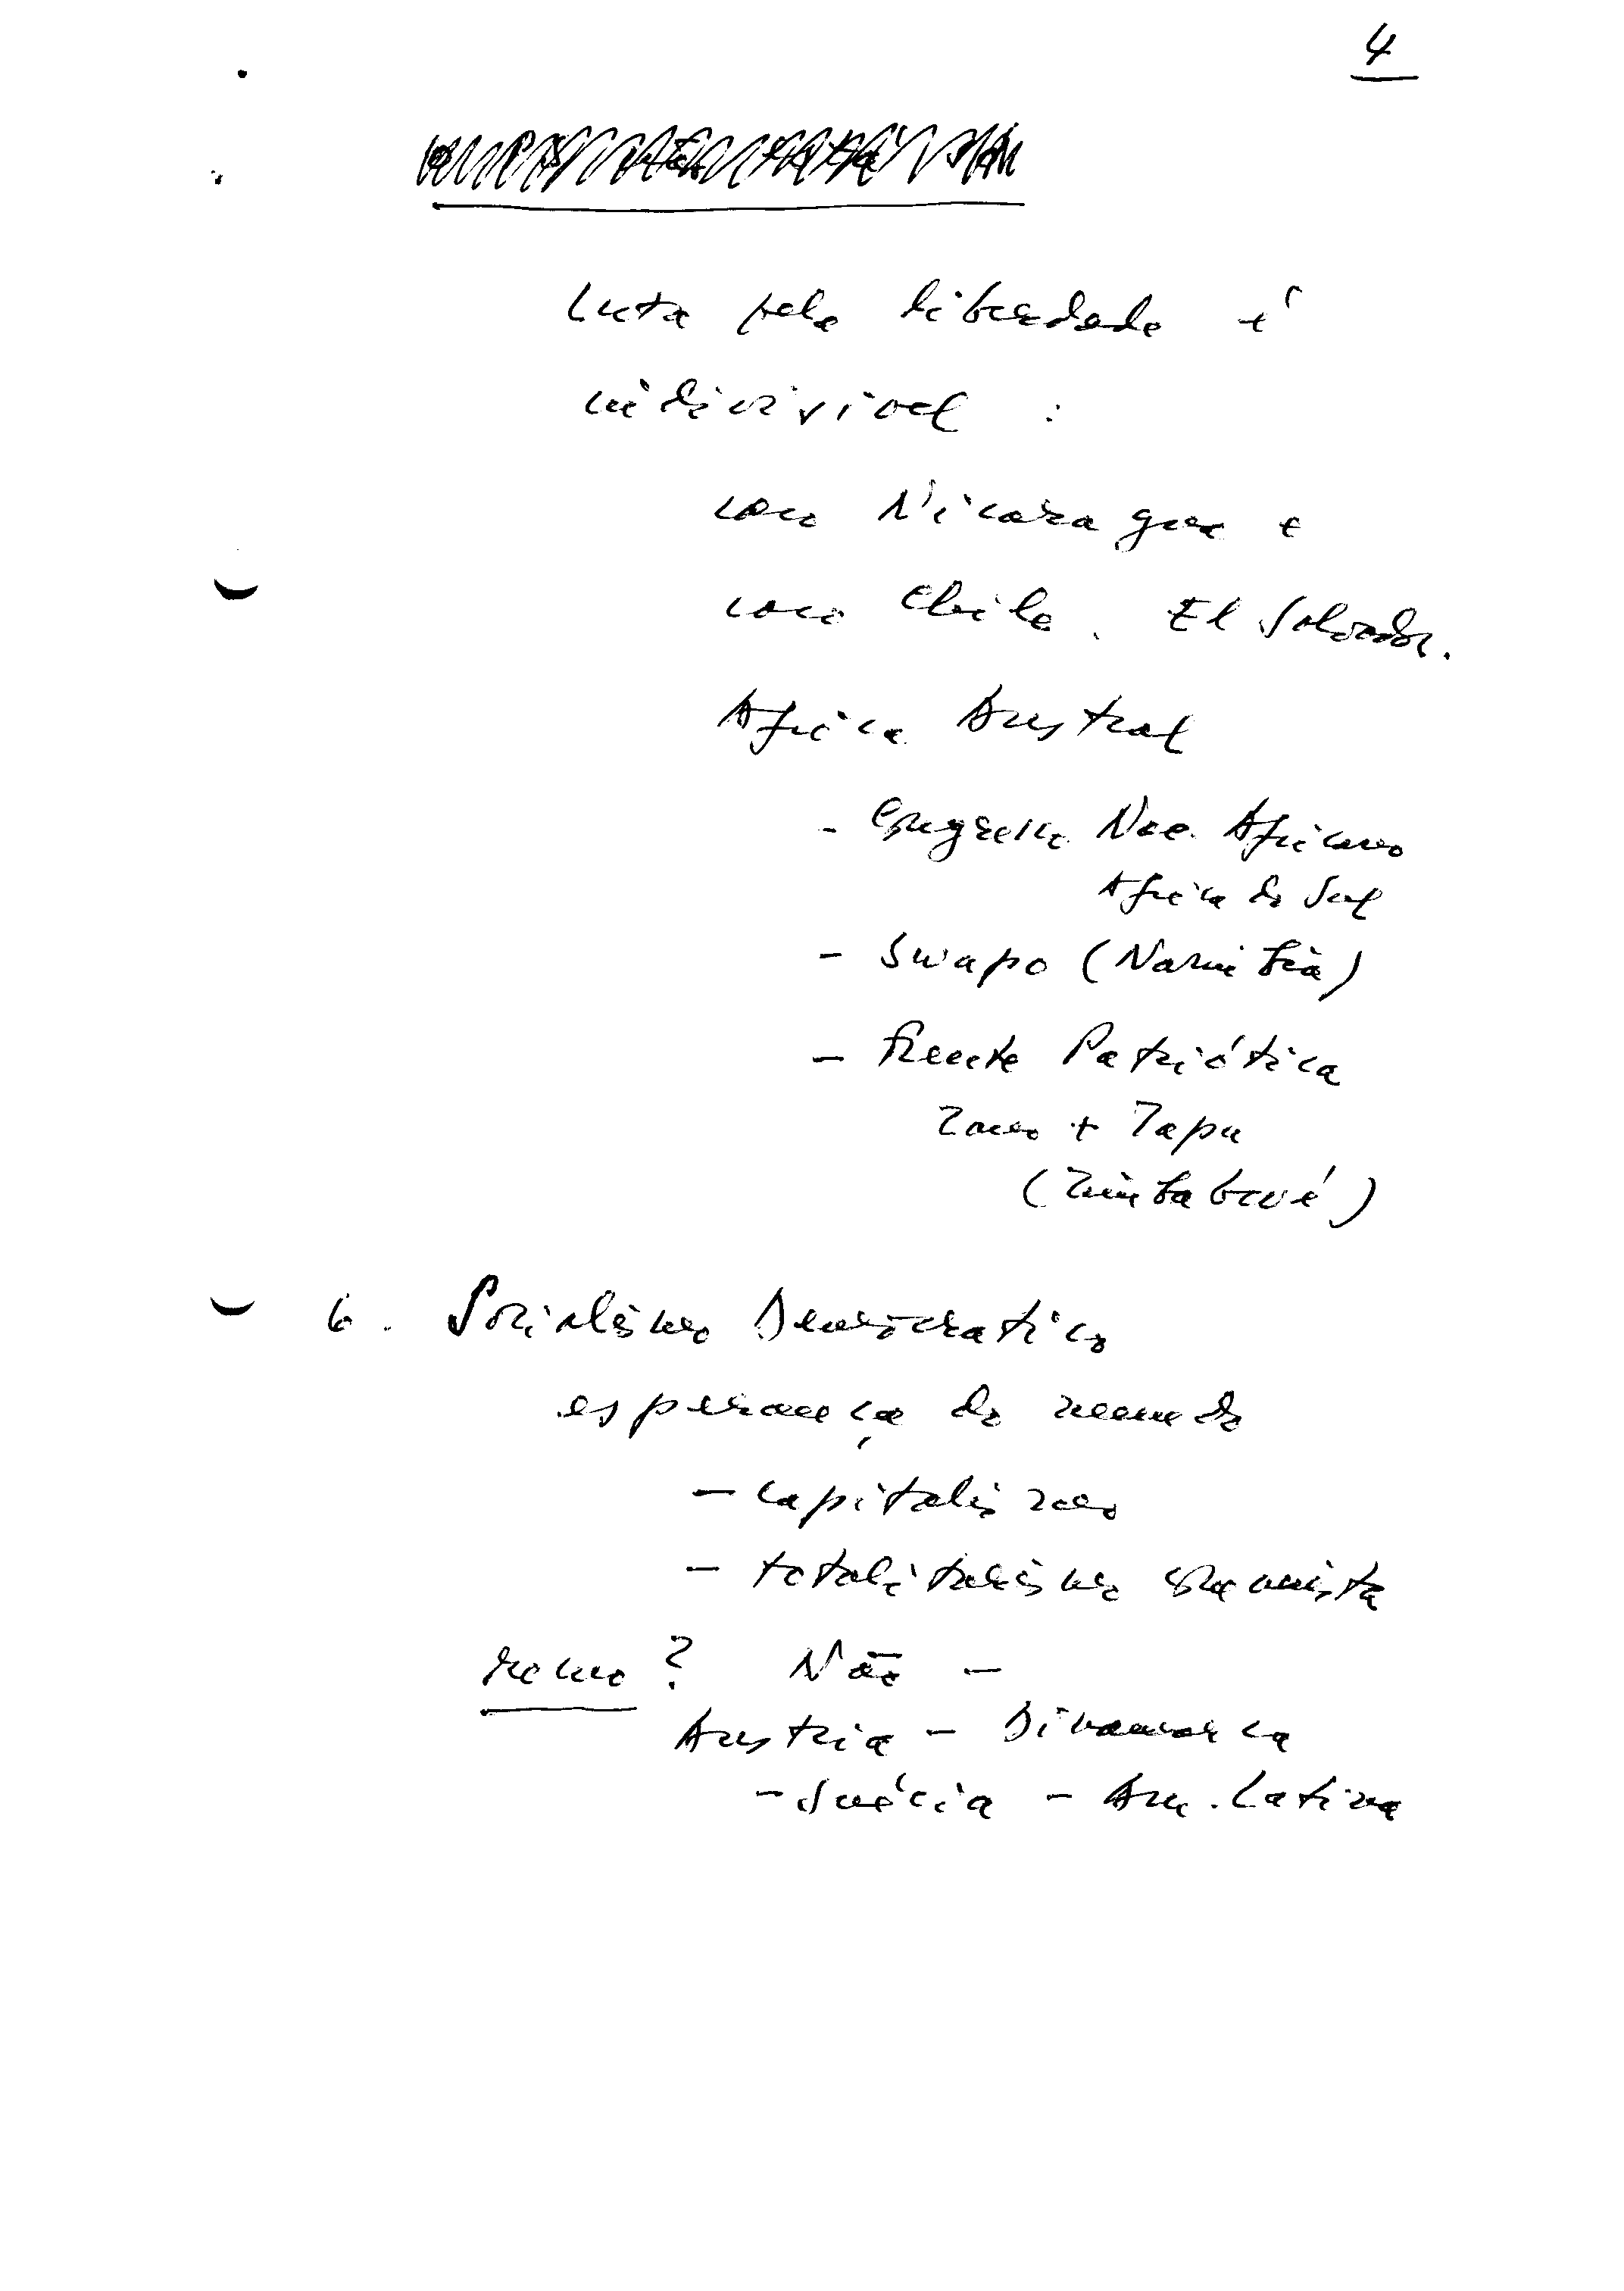 4
Luta pela liberdade é
indivisivel :
com Nicaragua e
com Chile. El Salvador.
Africa Austral
- Congresso Nac. Africano
Africa do Sul
- Swapo (Namibia)
- Frente Patriótica
Zanu + Zapu
(Zimbabwé)
6. Socialismo Democratico
esperança do mundo
- capitalismo
- totalitarismo comunista
? Não -
Austria - Dinamarca
- Suécia - Am. Latina